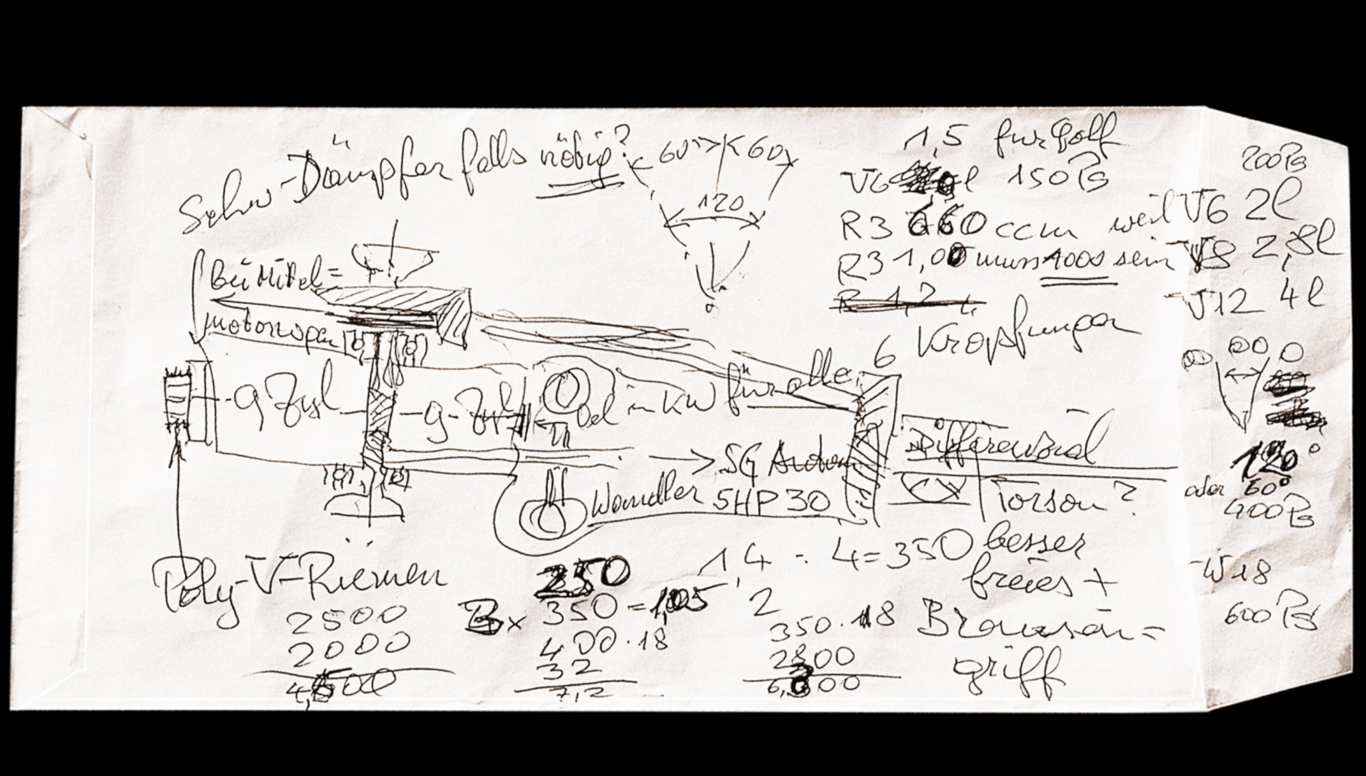 Schw-Dämpfer falls nötig?
60° 60
120
1,5 für Golf
V6 l 150 Ps
R3 660 ccm weil V6 2l
R3 1,00 muss 1000 sein V8 2,8l
V12 4l
200 Ps
6 Kröpfungen
Bei Mittel=
motorwagen
9 Zyl
9-Zyl
Öl in KW für alle
120°
oder 60°
400 Ps
W18
600 Ps
5G Autom
Wandler 5HP30
Differenzial
Torsen?
besser
freies +
Bremsen=
griff
Poly-V-Riemen
2500
2000
250
350 = 1,05
400 · 18
32
7,2
1,4 : 4 = 350
2
350 · 18
2800